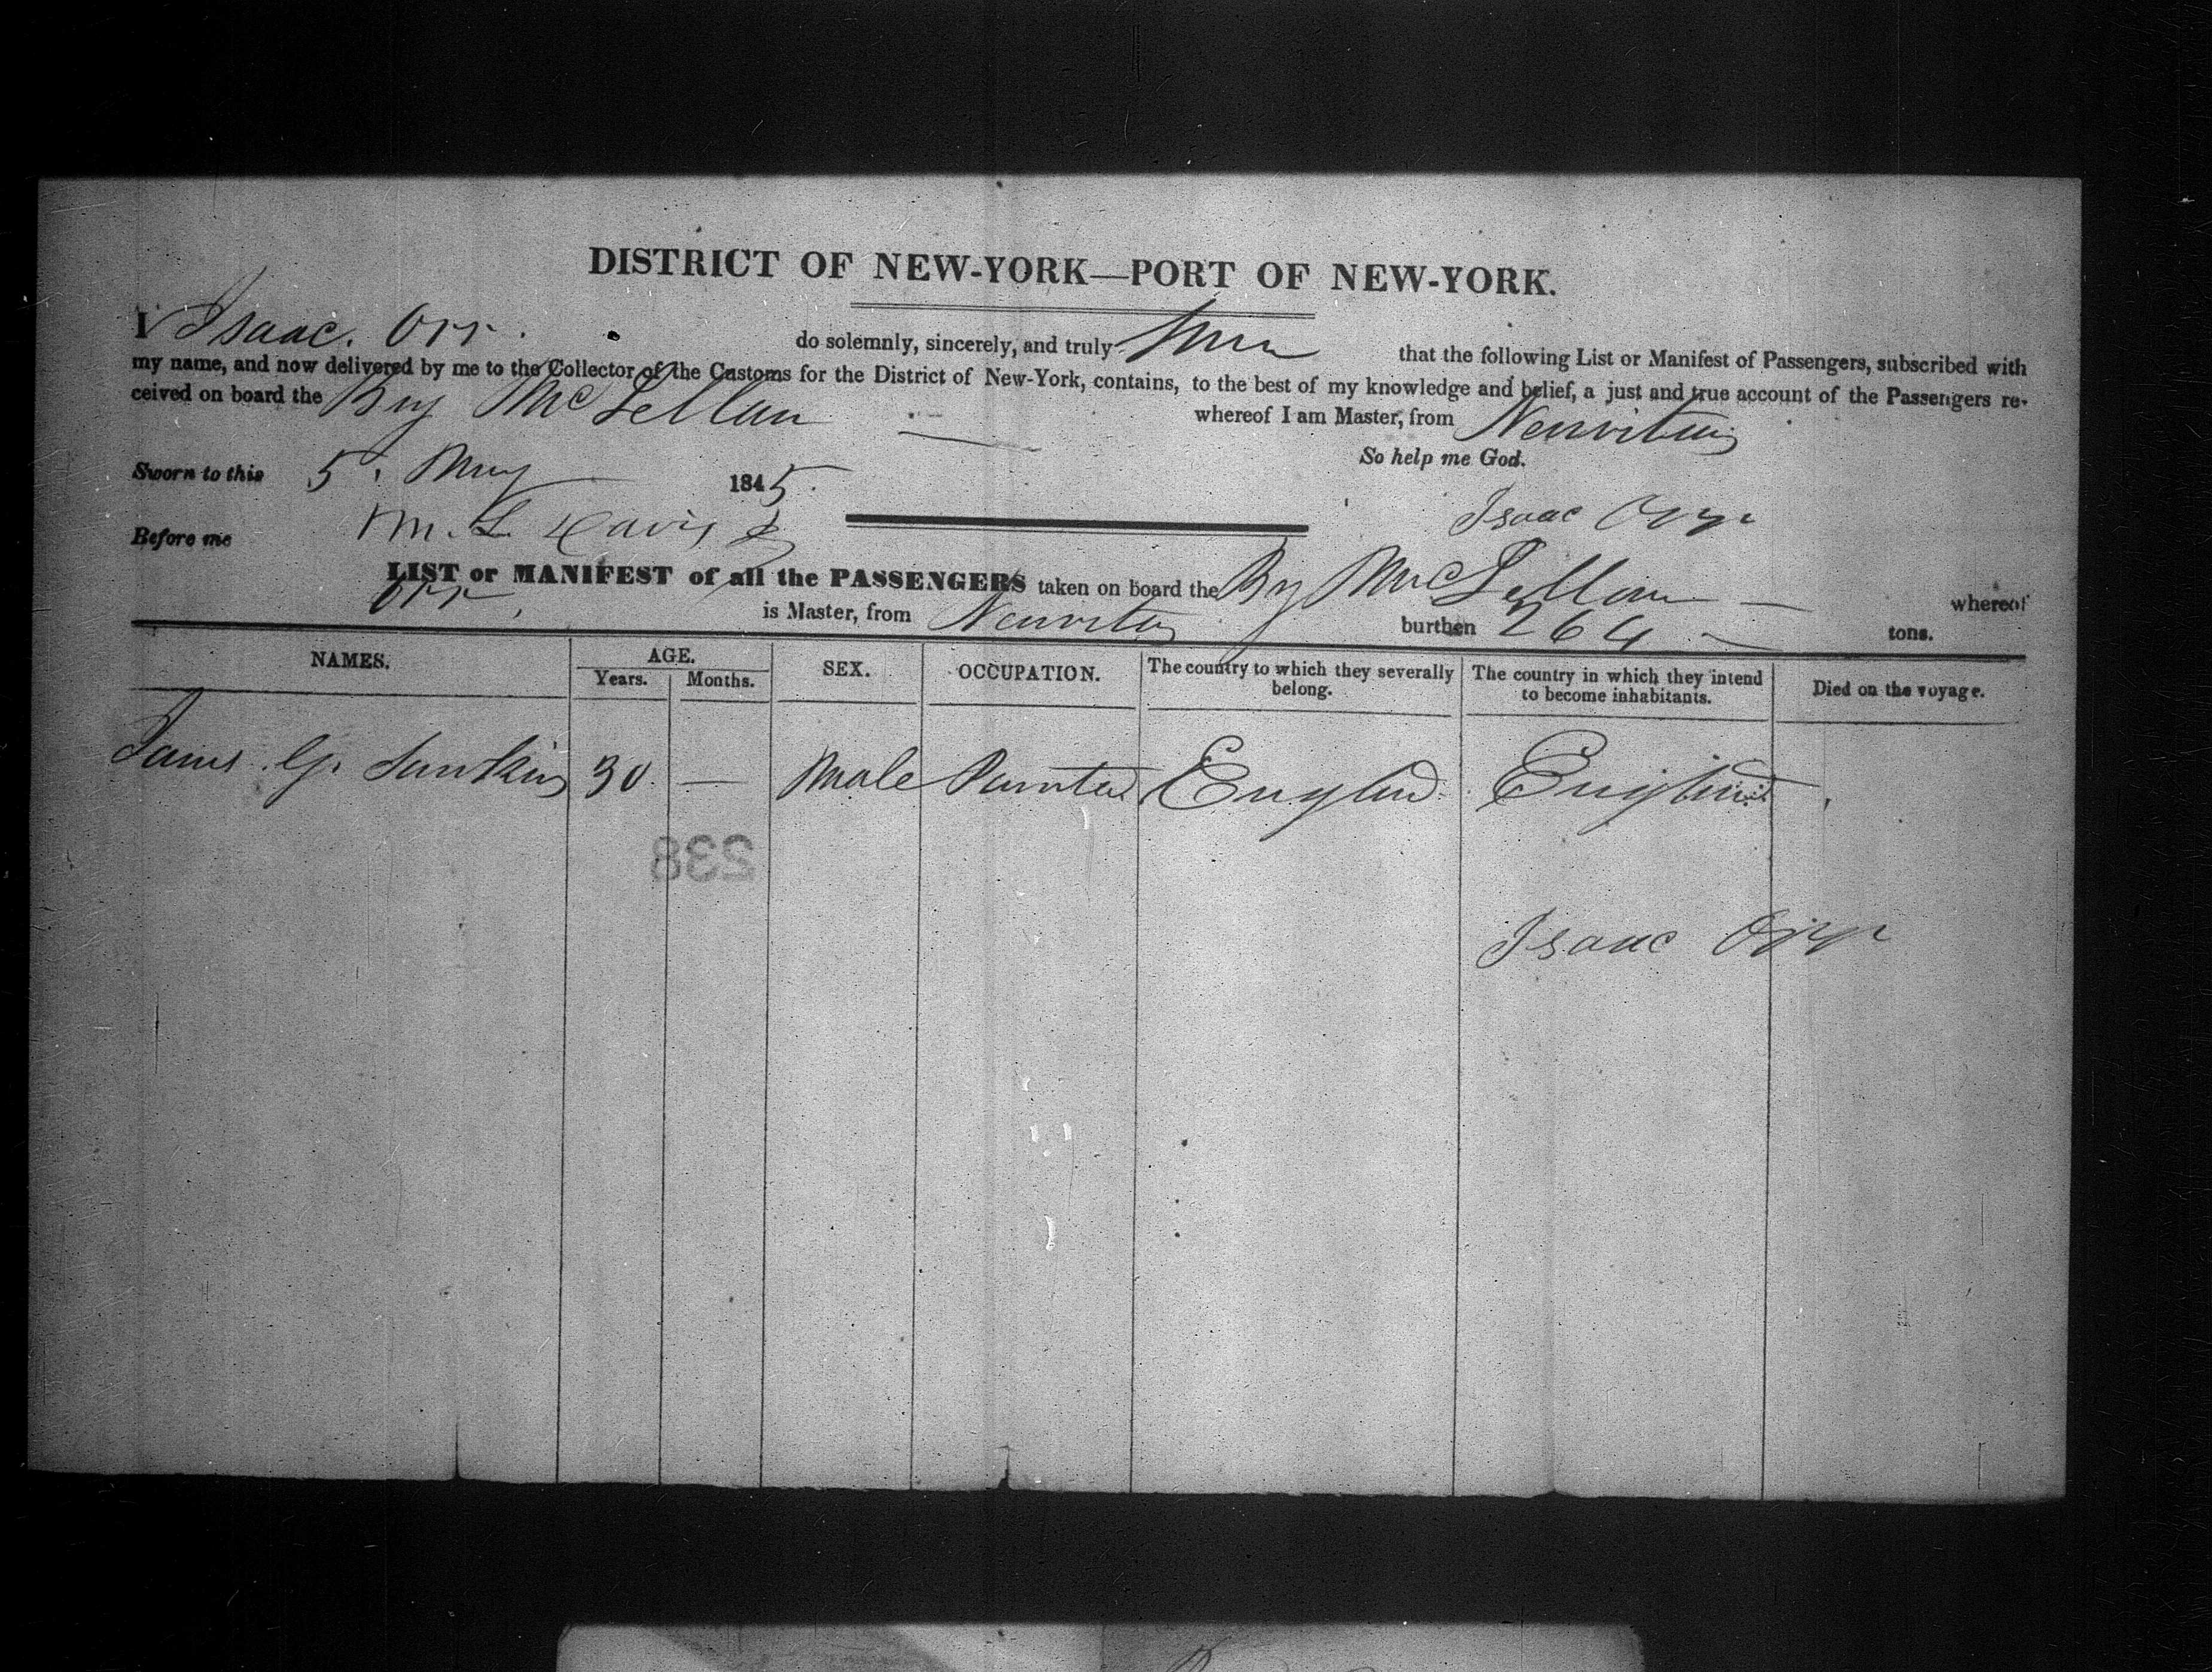 DISTRICT OF NEW-YORK—PORT OF NEW-YORK.
I Isaac. Orr. do solemnly, sincerely, and truly that the following List or Manifest of Passengers, subscribed with
my name, and now delivered by me to the Collector of the Customs for the District of New-York, contains, to the best of my knowledge and belief, a just and true account of the Passengers re-
ceived on board the Brig McLellan whereof I am Master, from Neuvitas
So help me God.
Sworn to this 5. May 1845.
Isaac Orr
Before me M. L. Davis
LIST or MANIFEST of all the PASSENGERS taken on board the Brig McLellan — whereof
Orr, is Master, from Neuvitas burthen 264 tons.
NAMES. AGE. SEX. OCCUPATION. The country to which they severally belong. The country in which they intend to become inhabitants. Died on the voyage.
Years. Months.
James G. 30 — Male Painter England England
238
Isaac Orr